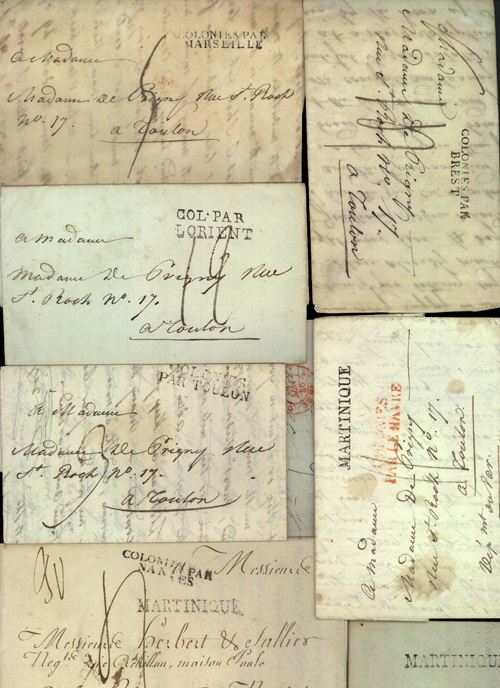 COLONIES PAR
MARSEILLE
a Madame
Madame De Prigny Rue St. Roch
No. 17.
a Toulon
COLONIES PAR
BREST
a Madame
Madame De Prigny
Rue St. Roch No. 17.
a Toulon
COL. PAR
LORIENT
a Madame
Madame De Prigny Rue
St. Roch No. 17.
a Toulon
COLONIES
PAR TOULON
a Madame
Madame De Prigny Rue
St. Roch No. 17.
a Toulon
MARTINIQUE
PAR LE HAVRE
a Madame
Madame De Prigny
Rue St. Roch No. 17.
a Toulon
COLONIES PAR
NANTES
Messieurs
MARTINIQUE
Messieurs Herbert &
maison
MARTINIQUE